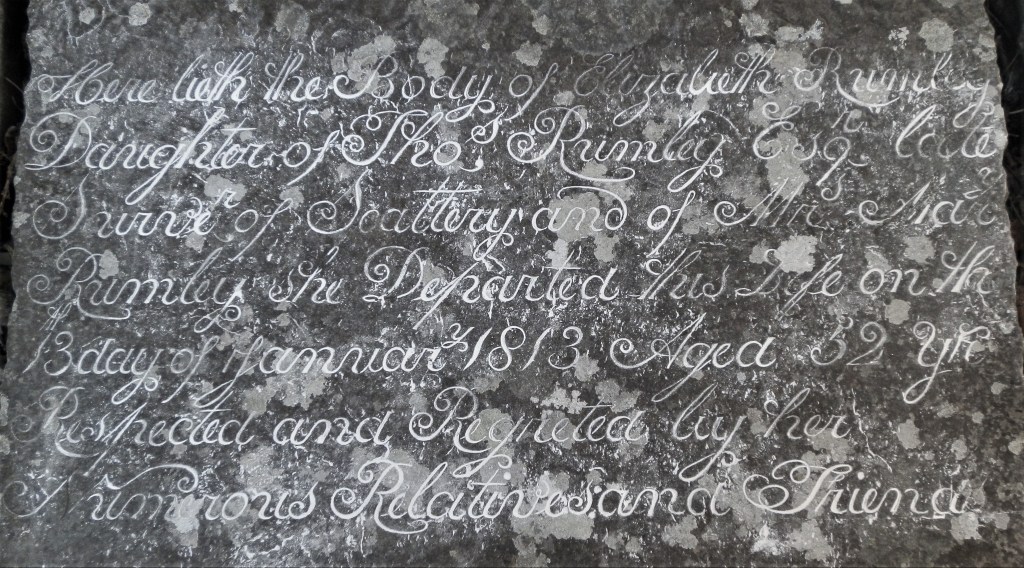 Here lieth the Body of Elizabeth Rumley
Daughter of Thoˢ Rumley Esqʳ late
Survʳ of Scattery and of Mrˢ Mar
Rumley she Departed this Life on the
13 day of Jannuarʸ 1813 Aged 32 Yʳˢ
Respected and Regreted by her
Numerous Relatives and Friend